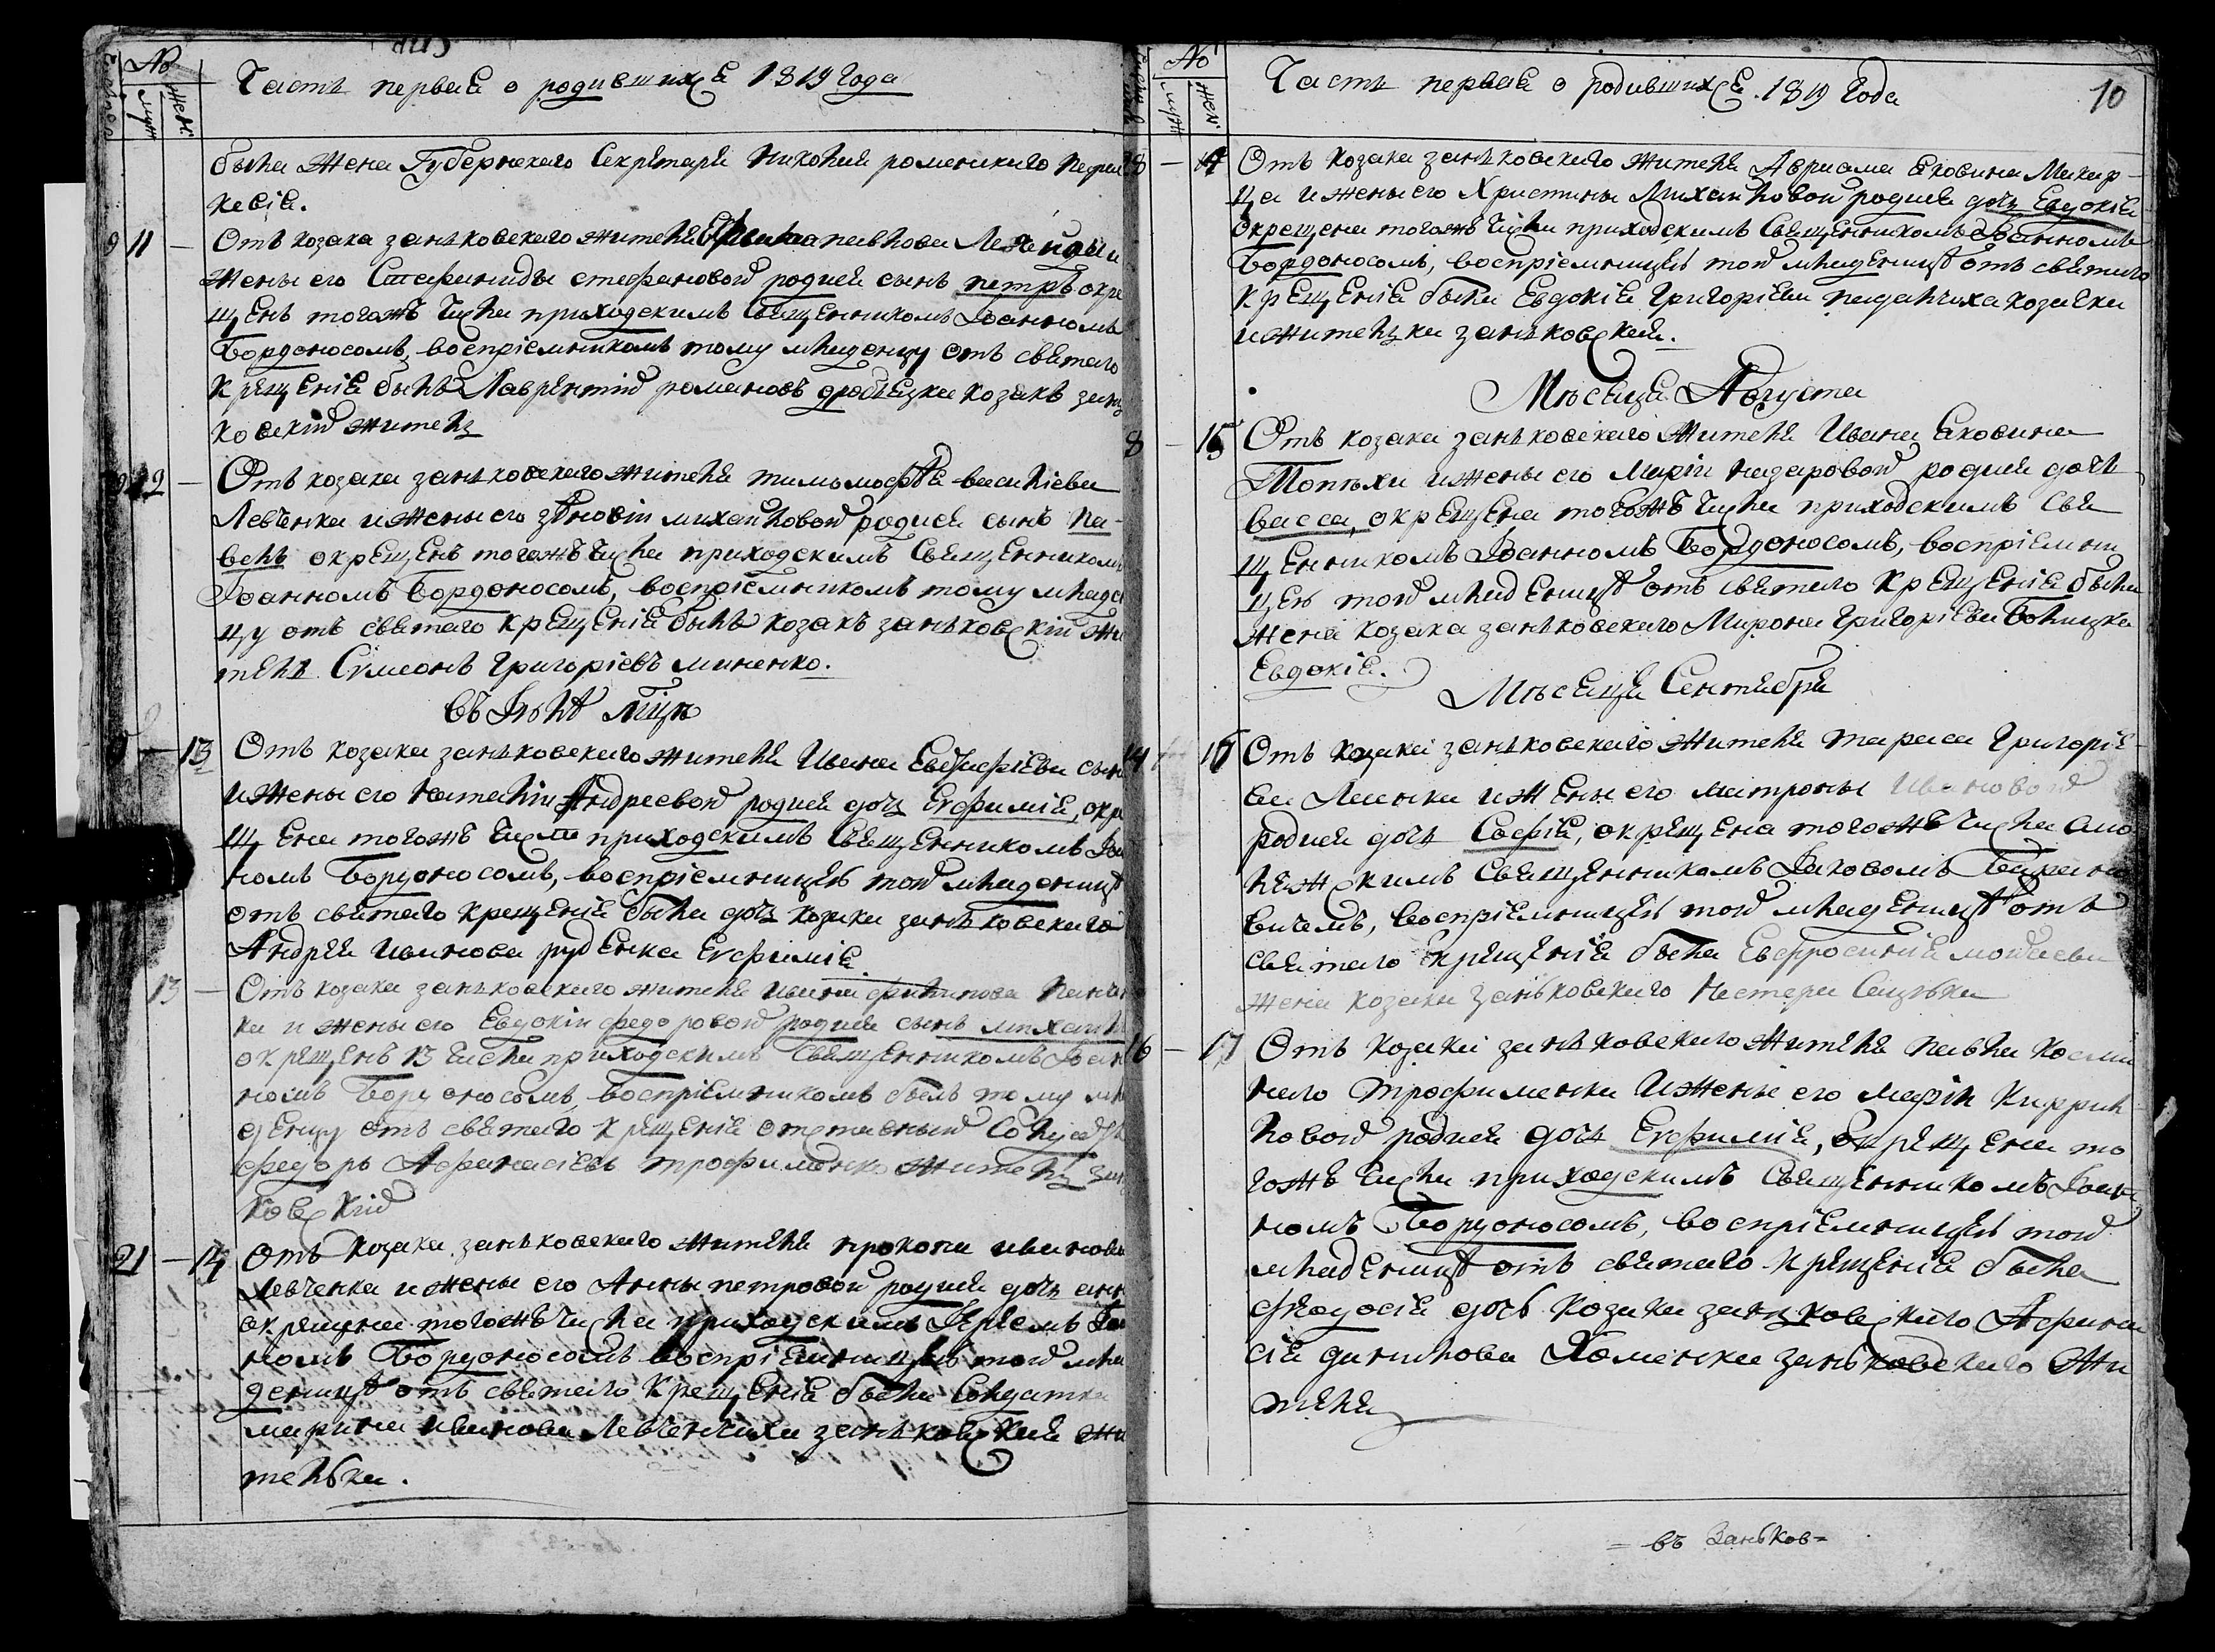 №
муж
жен.
Часть первая о родившихся 1819 года
была жена Губернскаго Секретаря Николая роменскаго
кевія.
9 11 — Отъ козака занковскаго жителя павлова
жены его Стефаниды стефановой родися сынъ петръ окре
щенъ тогожъ числа приходскимъ Священникомъ Іоанномъ
Бордоносомъ, воспріемникомъ тому младенцу отъ святаго
крещенія былъ Лаврентій романовъ козакъ зань
ковскій житель
12 — Отъ козака занковскаго жителя тимофѣя василіева
Левченка и жены его зѣновіи михайловой родися сынъ па-
велъ окрещенъ тогожъ числа приходскимъ Священникомъ
Іоанномъ Бордоносомъ, воспріемникомъ тому младен
цу отъ святаго крещенія былъ козакъ занковскій жи
тель Сѵмеонъ Григоріевъ миненко.
въ Іюлѣ мцѣ
— 13 Отъ козака занковскаго жителя Ивана
и жены его Наталіи Андреевой родися дочь Евфимія, окре
щена тогожъ числа приходскимъ Священникомъ Іоан
номъ Бордоносомъ, воспріемницею той младеницѣ
отъ святаго крещенія была дочь козака занковскаго
Андрея иванова руденка Евфимія
13 — Отъ козака занковскаго жителя ивана филипова
ка и жены его Евдокіи федоровой родися сынъ михаилъ
окрещенъ 13 числа приходскимъ Священникомъ Іоан
номъ Бордоносомъ, воспріемникомъ былъ тому мла
денцу отъ святаго крещенія отставный Солдатъ
федоръ Афанасіевъ трофименко житель зан
ковскій
21 — 14 Отъ козака занковскаго жителя прокопа иванова
Левченка и жены его Анны петровой родися дочь анна
окрещена тогожъ числа приходскимъ Іереемъ Іоан
номъ Бордоносомъ воспріемницею той мла
деницѣ отъ святаго крещенія была Солдатка
марина иванова Левченчиха занковская жи
телька.
№
муж
жен.
Часть первая о родившихся 1819 года
10
28 — 14 Отъ козака занковскаго жителя Авраама Яковина Макар-
ца и жены его Христины Михайловой родися дочь Евдокія
окрещена тогожъ числа приходскимъ Священникомъ Іоанномъ
Бордоносомъ, воспріемницею той младеницѣ отъ святаго
крещенія была Евдокія Григоріева падалчиха козачка
и жителька занковская.
Мѣсяца Августа
8 — 15 Отъ козака занковскаго жителя Ивана Яковина
Топѣхи и жены его Маріи назаровой родися дочь
васса, окрещена тогожъ числа приходскимъ Свя
щенникомъ Іоанномъ Бордоносомъ, воспріемни
цею той младеницѣ отъ святаго крещенія была
жена козака занковскаго Мирона Григоріева
Евдокія.
Мѣсяца Сентября
14 16 Отъ козака занковскаго жителя тараса Григоріе-
ва и жены его матроны Ивановой
родися дочь Софія, окрещена тогожъ числа
Священникомъ Іаковомъ
вичемъ, воспріемницею той младеницѣ отъ
святаго крещенія была Евфросинія моисеева
жена козака занковскаго Нестера
16 — 17 Отъ козака занковскаго жителя павла
трофименка и жены его маріи Кирри
ловой родися дочь Евфимія, окрещена то
гожъ числа приходскимъ Священникомъ Іоан
номъ Бордоносомъ, воспріемницею той
младеницѣ отъ святаго крещенія была
феодосія дочь козака занковскаго Афана
сія данилова Хоменка занковскаго жи
теля
= въ Заньков=